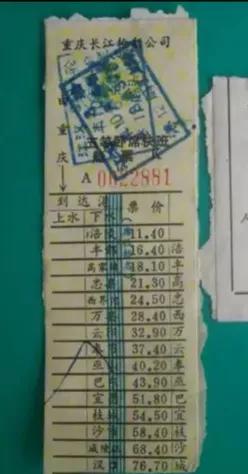 重庆长江轮船公司
由重庆
五等卧席快班
船票
A 0022881
到达港 票价
上水 下水
涪陵 11.40
丰都 16.40 涪
高家镇 18.10 丰
忠县 21.30 高
西界沱 24.50 忠
万县 28.40 西
云阳 32.90 万
奉节 37.40 云
巫山 40.20 奉
巴东 43.90 巫
宜昌 51.80 巴
枝城 54.50 宜
沙市 58.40 枝
城陵矶 68.40 沙
汉口 76.70 城